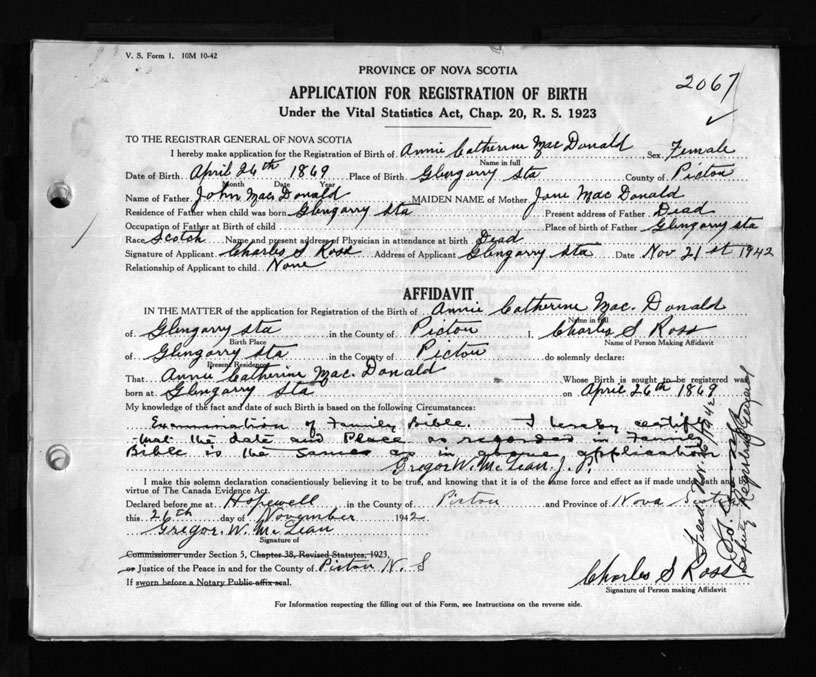 V. S. Form 1. 10M 10-42
PROVINCE OF NOVA SCOTIA
2067
APPLICATION FOR REGISTRATION OF BIRTH
Under the Vital Statistics Act, Chap. 20, R. S. 1923
TO THE REGISTRAR GENERAL OF NOVA SCOTIA
I hereby make application for the Registration of Birth of Annie Catherine Mac Donald Sex Female
Name in full
Date of Birth April 26th 1869 Place of Birth Glengarry Sta County of Pictou
Month Date Year
Name of Father John Mac Donald MAIDEN NAME of Mother Jane Mac Donald
Residence of Father when child was born Glengarry Sta Present address of Father Dead
Occupation of Father at Birth of child Place of birth of Father Glengarry Sta
Race Scotch Name and present address of Physician in attendance at birth Dead
Signature of Applicant Charles S Ross Address of Applicant Glengarry Sta Date Nov 21st 1942
Relationship of Applicant to child None
AFFIDAVIT
IN THE MATTER of the application for Registration of the Birth of Annie Catherine Mac. Donald
Name in full
of Glengarry Sta in the County of Pictou I, Charles S Ross
Birth Place Name of Person Making Affidavit
of Glengarry Sta in the County of Pictou do solemnly declare:
Present Residence
That Annie Catherine Mac. Donald Whose Birth is sought to be registered was
born at Glengarry Sta on April 26th 1869
My knowledge of the fact and date of such Birth is based on the following Circumstances:
Examination of Family Bible. I hereby certify
that the date and Place as recorded in Family
Bible is the Same as in above application
Gregor W. McLean. J. P.
I make this solemn declaration conscientiously believing it to be true, and knowing that it is of the same force and effect as if made under Oath and by
virtue of The Canada Evidence Act.
Declared before me at Hopewell in the County of Pictou and Province of Nova Scotia
this 26th day of November 1942
Gregor. W. McLean
Signature of
Commissioner under Section 5, Chapter 38, Revised Statutes, 1923,
or Justice of the Peace in and for the County of Pictou N. S
If sworn before a Notary Public affix seal.
Charles S Ross
Signature of Person making Affidavit
Deputy Registrar General
For Information respecting the filling out of this Form, see Instructions on the reverse side.